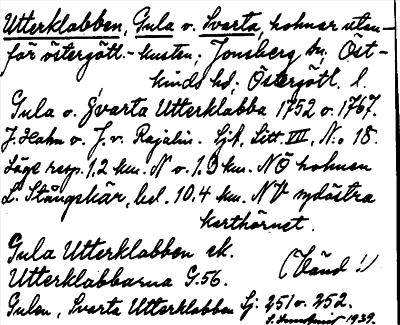 Utterklabben, Gula o. Svarta, holmar utan-
för östergötl.-kusten; Jonsberg sn, Öst-
kinds hd; Östergötl. l.
Gula o. Svarta Utterklabba 1752 o. 1767.
J. Hahn o. J. v. Rajalin. Sjk, Litt. VII, N:o 18.
Läge resp. 1,2 km. N o. 1,3 km. NÖ holmen
L. Stångskär, bel. 10,4 km. NV nordöstra
karthörnet.
Gula Utterklabben ek.
Utterklabbarna G.56. (Vänd!)
Gulan, Svarta Utterklabben Sj: 251 o. 252.
1939.